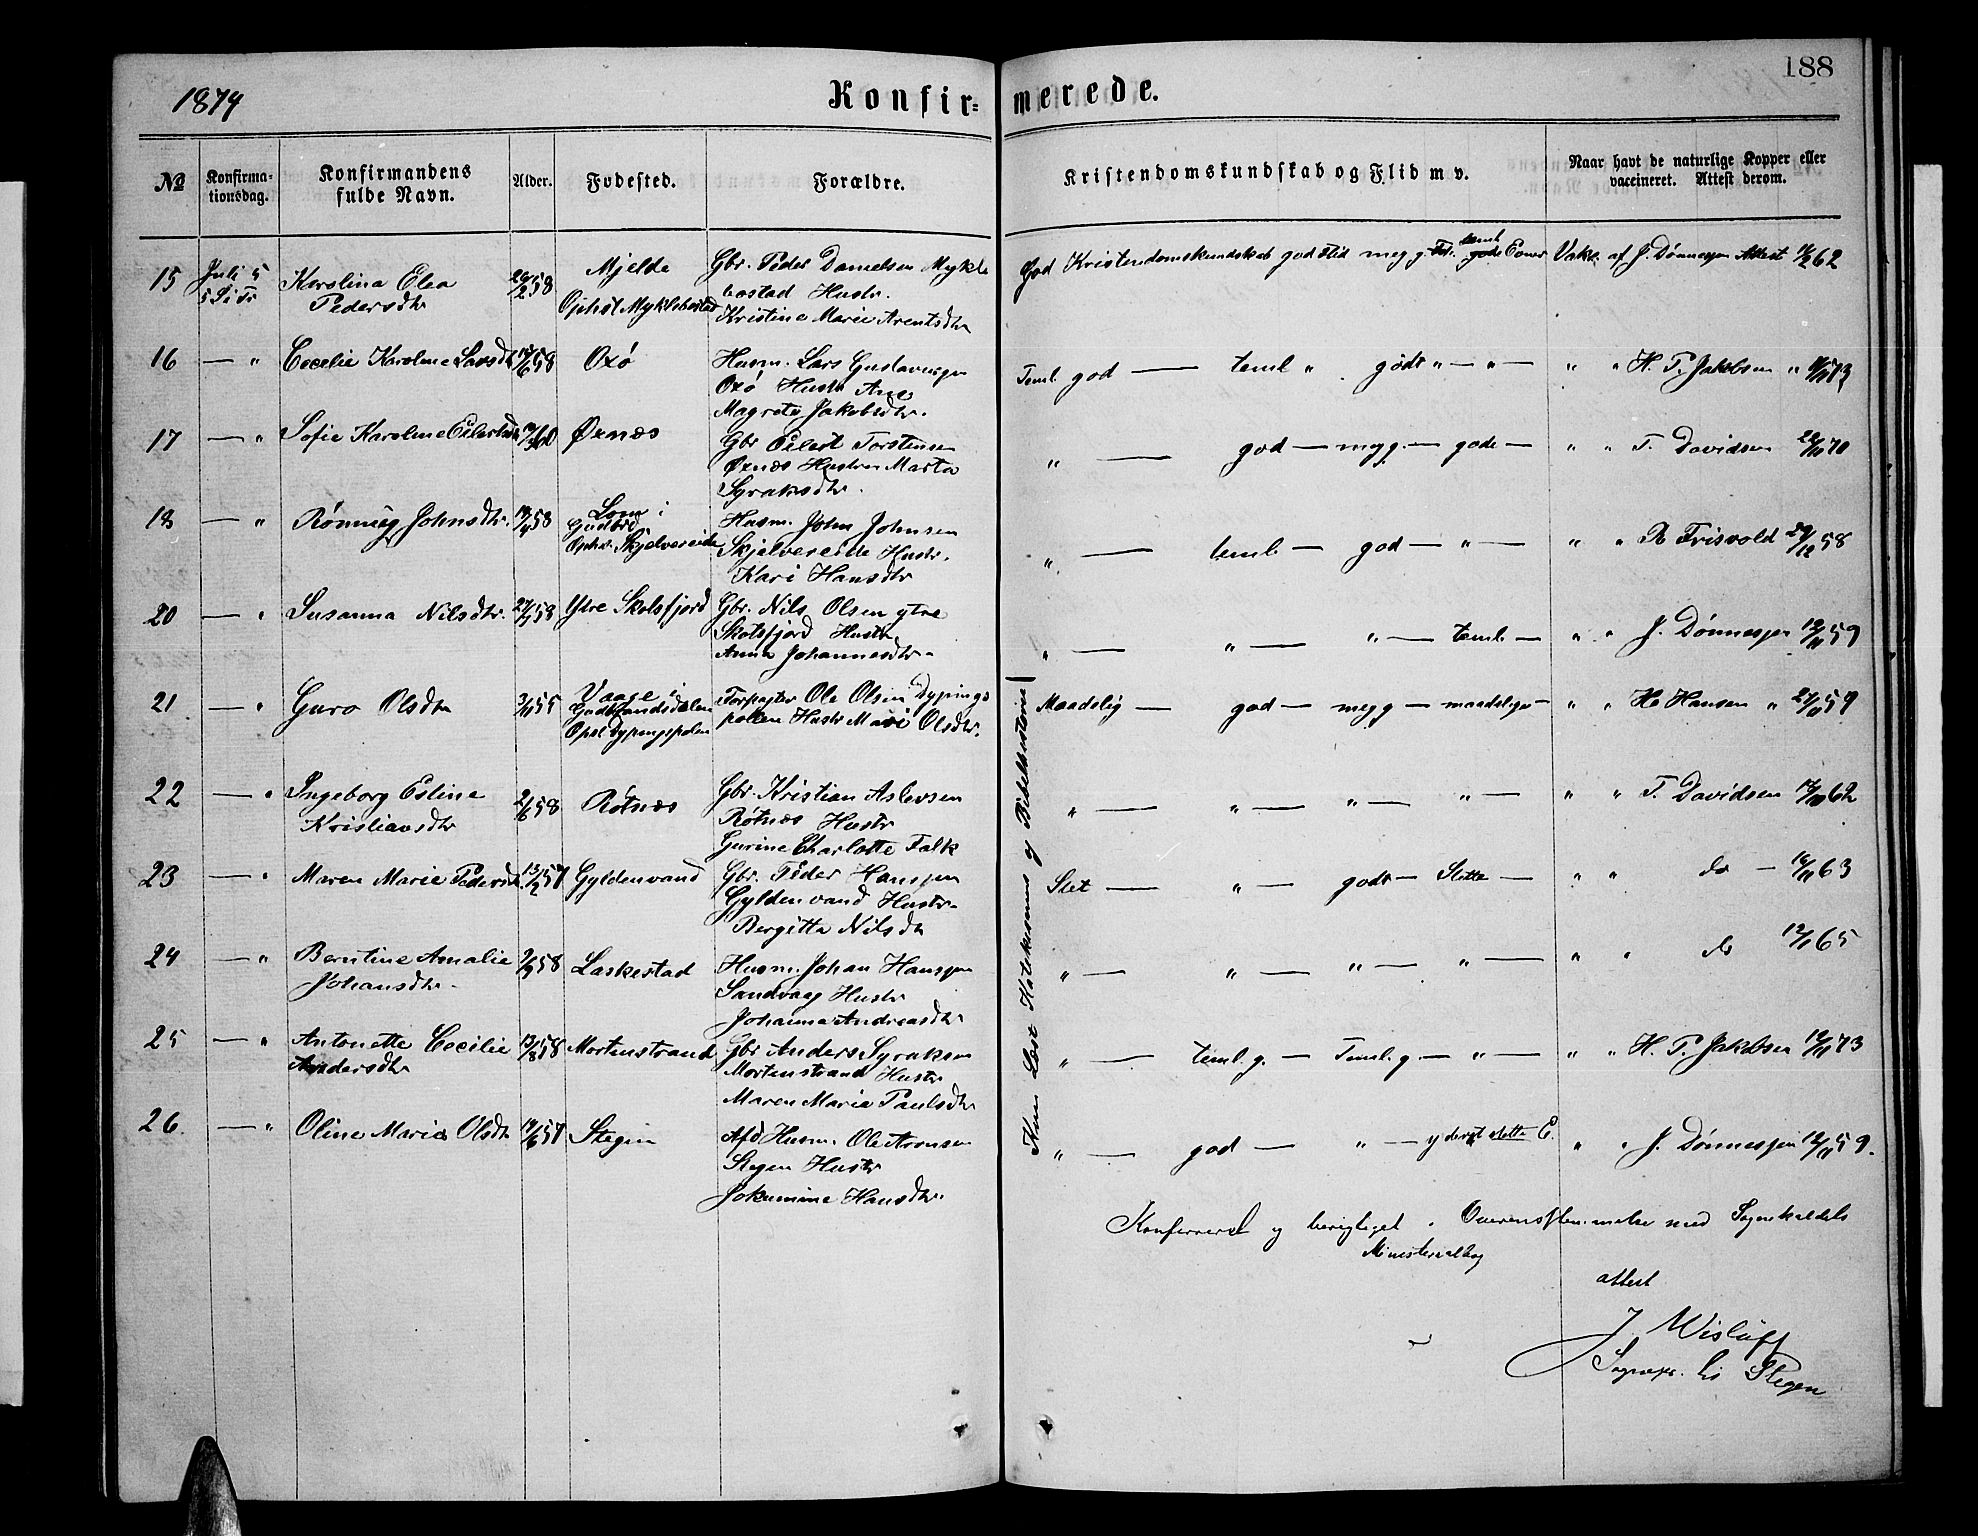 188
1874
Konfir- merede.
No
Konfirma-
tionsdag.
Konfirmandens
fulde Navn.
Alder.
Fødested.
Forældre.
Kristendomskundskab og Flid m v.
Naar havt de naturlige Kopper eller
vaccineret. Attest derom.
15 Juli 5 Karolina Elea Pedersdtr 58 Mjelde
Gbr. Peder Danielsen Mykle
bostad Hustr.
Kristine Marie Arentsdtr
God Kristendomskundskab god Flid meg g. temb gode Evner Vakc. af J. Dønnessen Attest 62
16 — " Cecelie Karoline Larsdtr 58 Oxö
Husm. Lars Gustavussen
Oxö Hustr Ane
Magrete Jakobsdtr.
Teml. god — teml " godt " — " — " " H. P. Jakobsen " 73
17 — " Sofie Karoline 60 Øxnæs
Gbr Eilert Torstensen
Øxnæs Hustru Marta
Syraksdtr.
" — god — meg g. — gode — " " T. Davidsen 70
18 — " Rönnug Johnsdtr. 58 Lom i
Gudbrd.
Ophv. Skjelvereide
Husm. John Johnsen
Skjelvereide Hustr.
Kari Hansdtr
" — teml — god — " — " " R Frisvold 29/12 58
20 — " Susanna Nilsdtr. 58 Ytre Skotsfjord
Gbr. Nils Olsen ytre
Skotsfjord Hustr
Anna Johannesdtr.
" — " — " — temb — " " J. Dønnessen 12/11 59
21 — " Guro Olsdtr 3/11 55 Vaage i
Gudbrandsdalen
Opst Dypingspolen
Forpagter Ole Olsen Dypings
polen Hustr Mari Olsdtr.
Maadelig — god — meg g — maadelige — " " H. Hansen " 59
22 — " Ingeborg Esline
Kristiansdtr 58 Røtnæs
Gbr. Kristian Aslevsen
Røtnæs Hustr
Gurine Charlotte Falk
" — " — " — " — " " T. Davidsen 62
23 — " Maren Marie Pedersdtr 13/12 57 Gyldenvand
Gbr. Peder Hanssen
Gyldenvand Hustr.
Bergitta Nilsdtr
Slet — " — godt — Slette — " " do — 16/11 63
24 — " Berntine Amalie
Johansdtr. 58 Laskestad
Husm. Johan Hanssen
Sandvaag Hustr
Johanna Andreasdtr
" — " — " — " — " " do 65
25 — " Antonette Cecilie
Andersdtr 13/8 58 Mortenstrand
Gbr Anders Syraksen
Mortenstrand Hustr
Maren Maria Paulsdtr
" — teml. g. — Teml. g — " — " " H. P. Jakobsen 12/11 73
26. — " Oline Marie Olsdtr 57 Stegen
Afd Husm. Ole Aronsen
Stegen Hustr
Jokumine Hansdtr.
" — god — " — yderst slette E. " " J. Dønnessen 12/11 59.
Kun Læst Katekismus og Bibelhistorie
Konfereret og berigtiget i Overensstemmelse med Sognekaldets
Ministerialbog
attest
J Wisløff
Sognepr. til Stegen